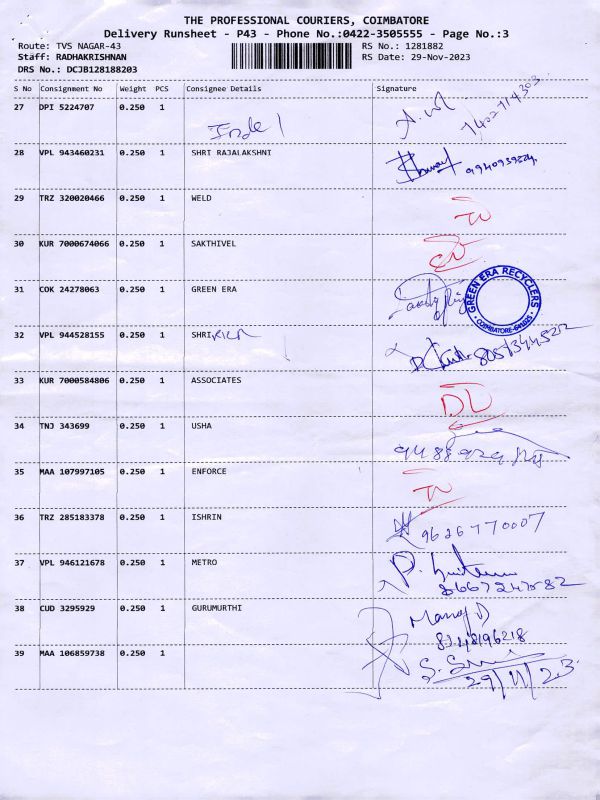 THE PROFESSIONAL COURIERS, COIMBATORE
Delivery Runsheet - P43 - Phone No.:0422-3505555 - Page No.:3
Route: TVS NAGAR-43 RS No.: 1281882
Staff: RADHAKRISHNAN RS Date: 29-Nov-2023
DRS No.: DCJB128188203
S No Consignment No Weight PCS Consignee Details Signature
27 DPI 5224707 0.250 1
28 VPL 943460231 0.250 1 SHRI RAJALAKSHNI
29 TRZ 320020466 0.250 1 WELD
30 KUR 7000674066 0.250 1 SAKTHIVEL
31 COK 24278063 0.250 1 GREEN ERA
GREEN ERA RECYCLERS
COIMBATORE-641025
32 VPL 944528155 0.250 1 SHRI
33 KUR 7000584806 0.250 1 ASSOCIATES
DL
34 TNJ 343699 0.250 1 USHA
35 MAA 107997105 0.250 1 ENFORCE
36 TRZ 285183378 0.250 1 ISHRIN
9626770007
37 VPL 946121678 0.250 1 METRO
38 CUD 3295929 0.250 1 GURUMURTHI
Manoj D
39 MAA 106859738 0.250 1
29/11/23